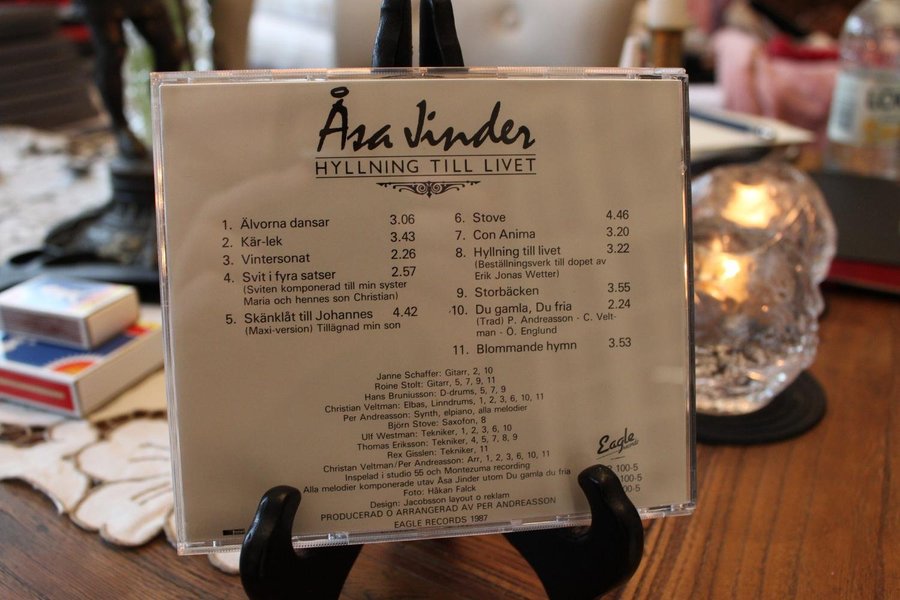 Åsa Jinder
HYLLNING TILL LIVET
1. Älvorna dansar 3.06
2. Kär-lek 3.43
3. Vintersonat 2.26
4. Svit i fyra satser 2.57
(Sviten komponerad till min syster
Maria och hennes son Christian)
5. Skänklåt till Johannes 4.42
(Maxi-version) Tillägnad min son
6. Stove 4.46
7. Con Anima 3.20
8. Hyllning till livet 3.22
(Beställningsverk till dopet av
Erik Jonas Wetter)
9. Storbäcken 3.55
10. Du gamla, Du fria 2.24
(Trad) P. Andreasson - C. Velt-
man - Ö. Englund
11. Blommande hymn 3.53
Janne Schaffer: Gitarr, 2, 10
Roine Stolt: Gitarr, 5, 7, 9, 11
Hans Bruniusson: D-drums, 5, 7, 9
Christian Veltman: Elbas, Linndrums, 1, 2, 3, 6, 10, 11
Per Andreasson: Synth, elpiano, alla melodier
Björn Stove: Saxofon, 8
Ulf Westman: Tekniker, 1, 2, 3, 6, 10
Thomas Eriksson: Tekniker, 4, 5, 7, 8, 9
Rex Gisslen: Tekniker, 11
Christian Veltman/Per Andreasson: Arr, 1, 2, 3, 6, 10, 11
Inspelad i studio 55 och Montezuma recording
Alla melodier komponerade utav Åsa Jinder utom Du gamla du fria
Foto: Håkan Falck
Design: Jacobsson layout o reklam
PRODUCERAD O ARRANGERAD AV PER ANDREASSON
EAGLE RECORDS 1987
Eagle
100-5
100-5
00-5